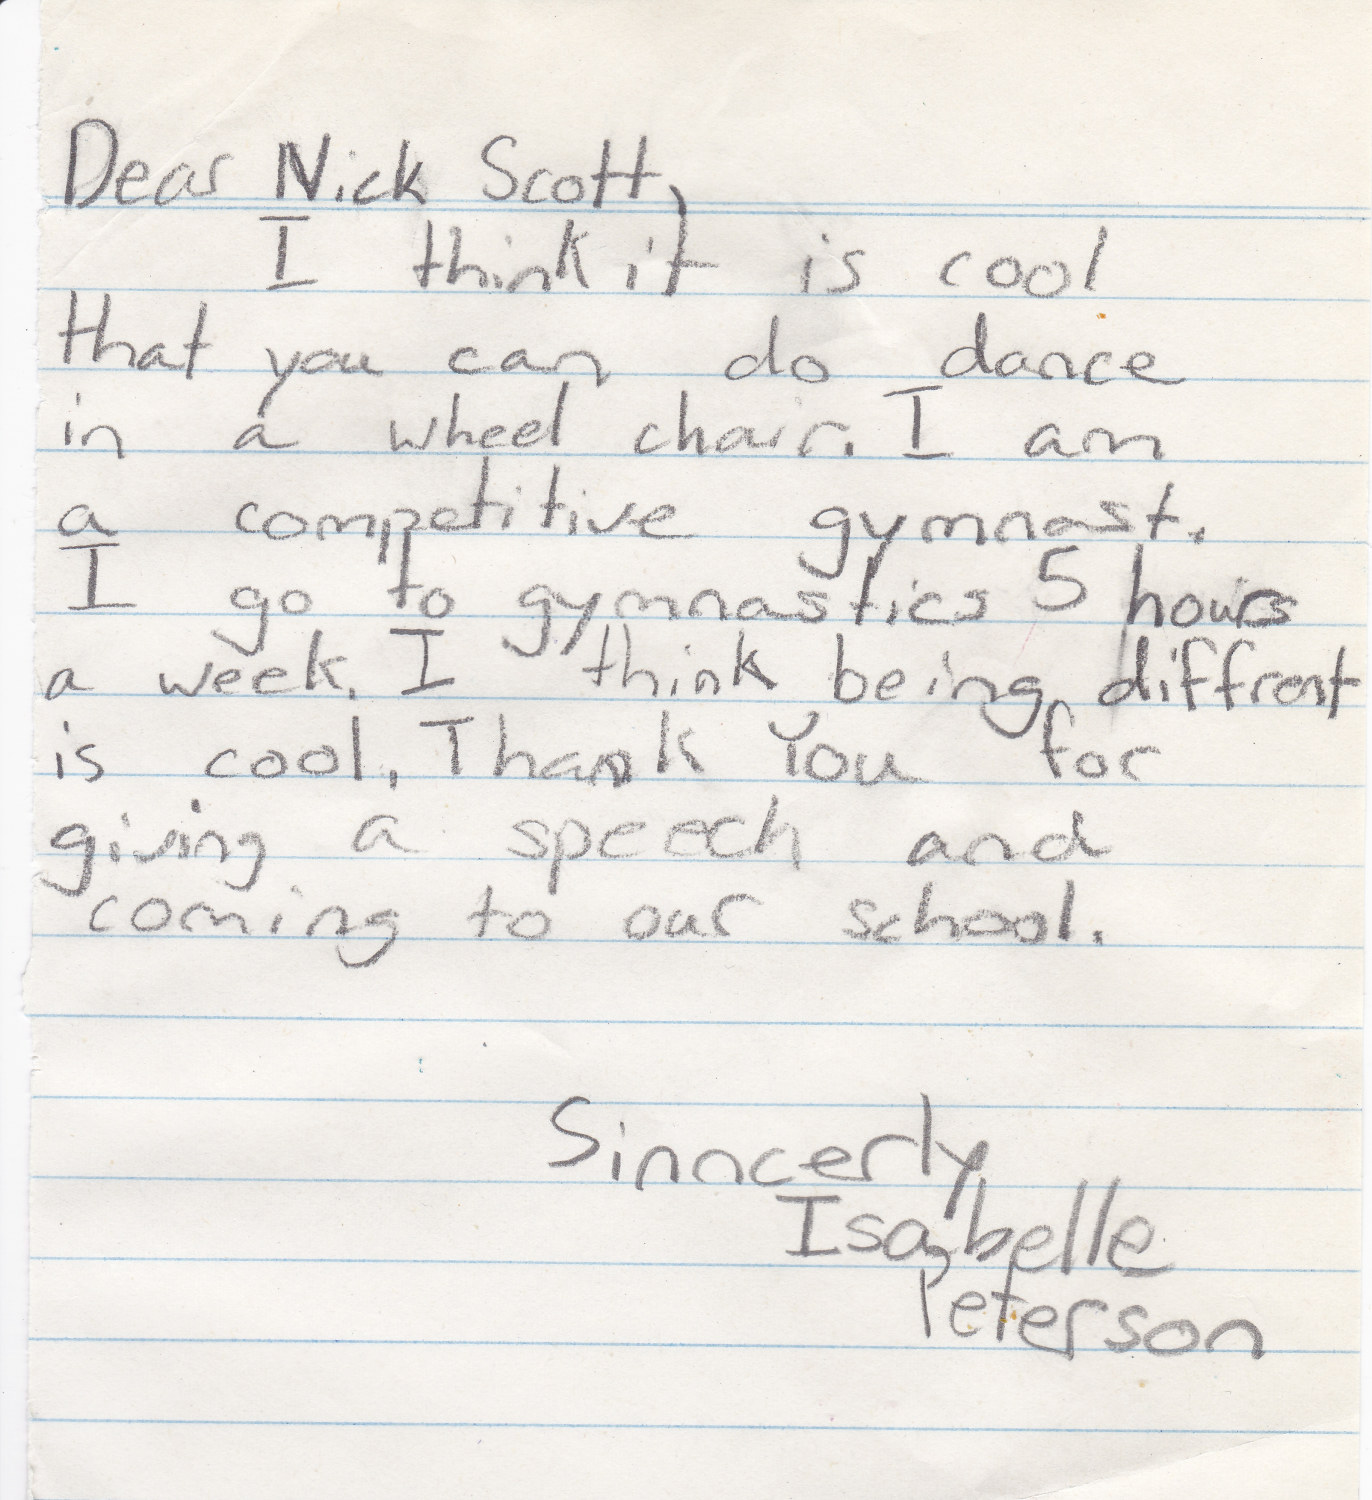 Dear Nick Scott,
I think it is cool
that you can do dance
in a wheel chair. I am
a competitive gymnast.
I go to gymnastics 5 hours
a week. I think being diffrent
is cool. Thank You for
giving a speech and
coming to our school.
Sinncerly
Isabelle
Peterson